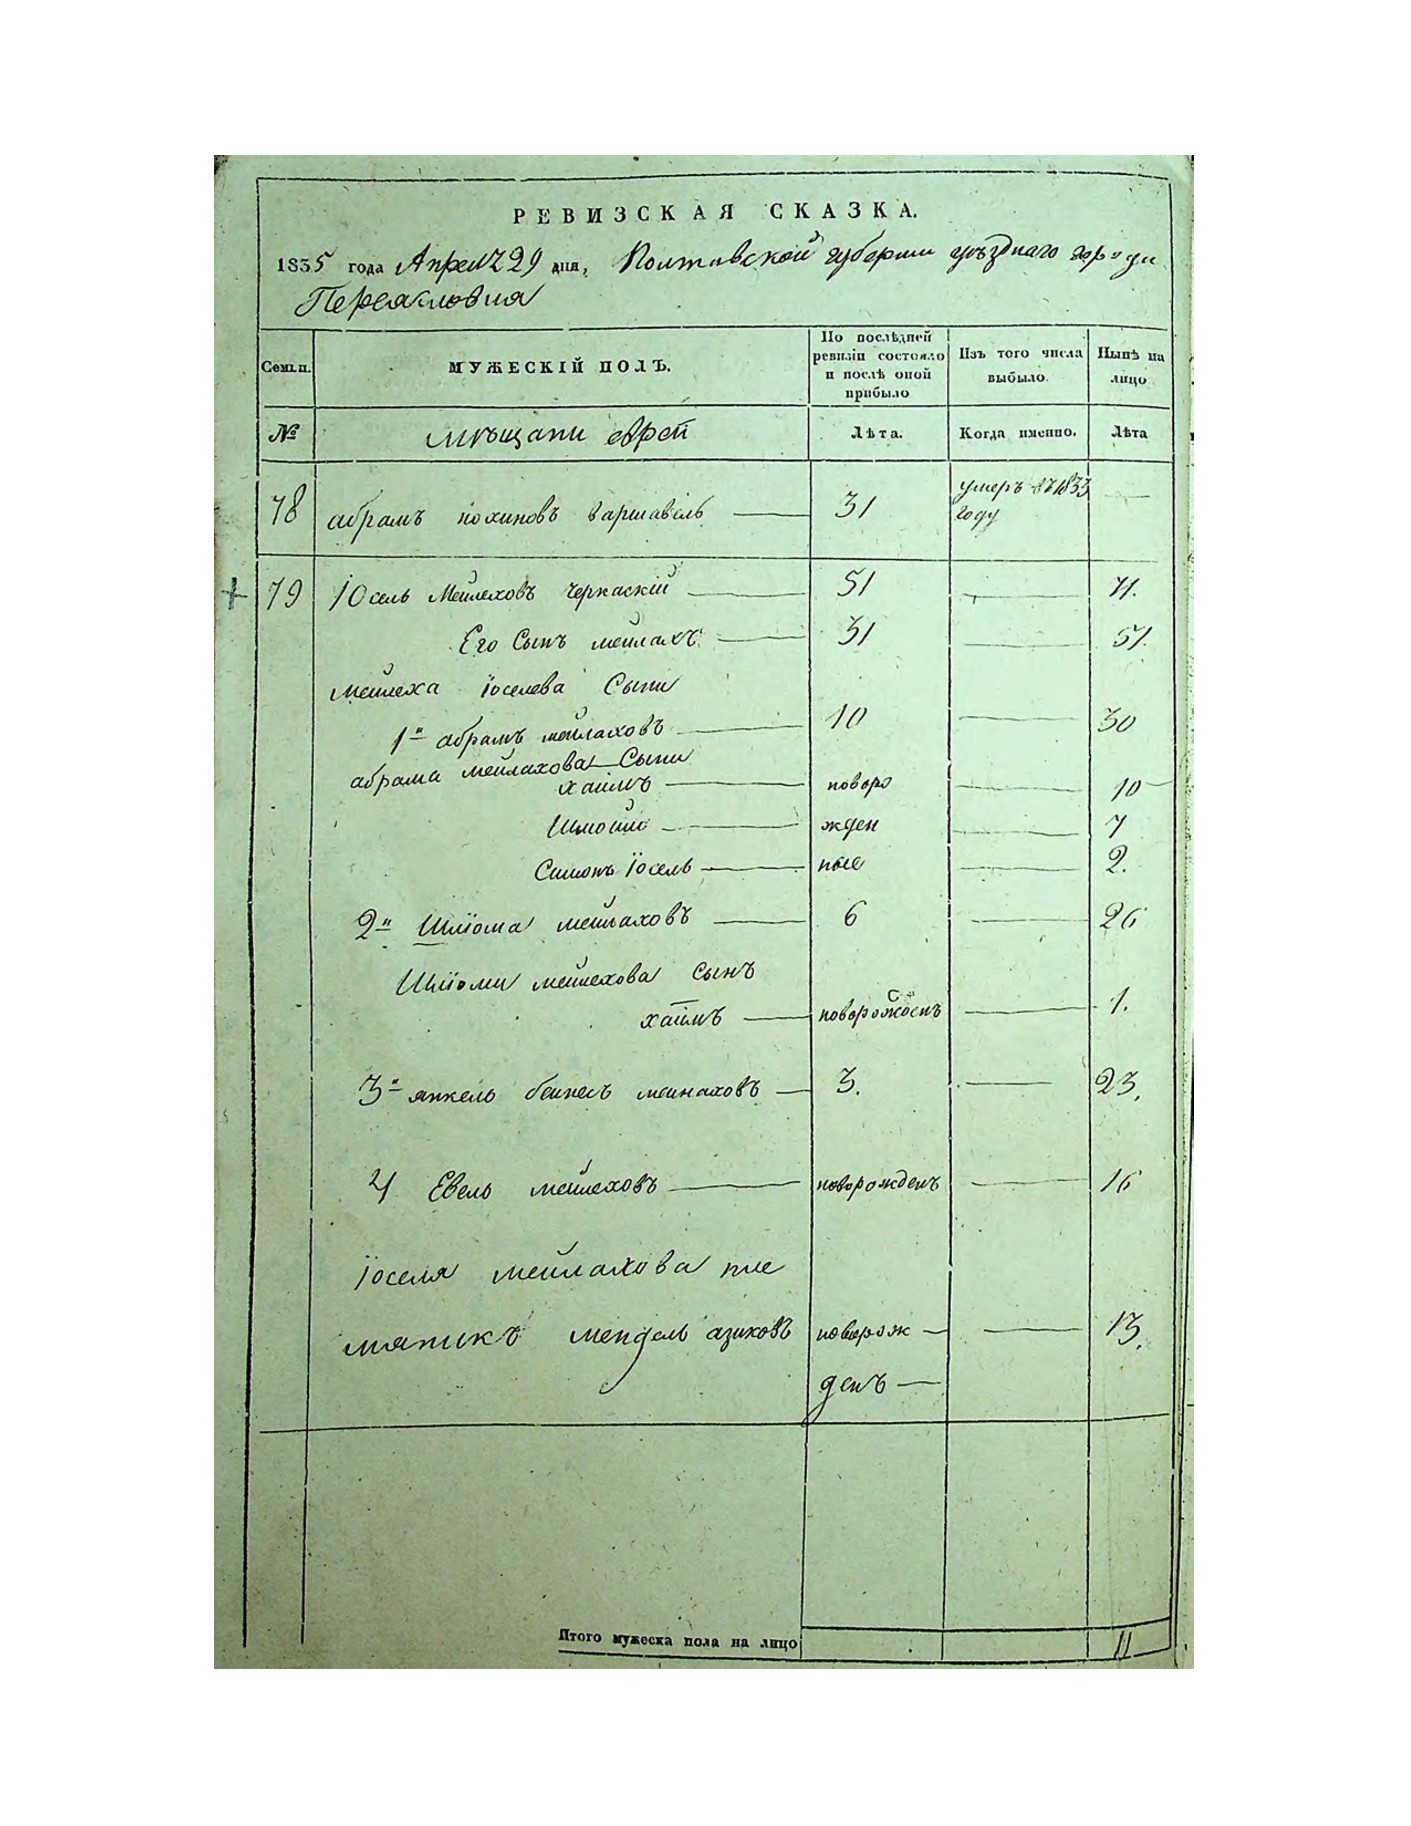 РЕВИЗСКАЯ СКАЗКА.
1835 года Апреля 29 дня, Полтавской губернии уѣзднаго города
Переяславля
Семьи. МУЖЕСКІЙ ПОЛЪ. По послѣдней ревизіи состояло и послѣ оной прибыло Изъ того числа выбыло. Нынѣ на лицо
№ мѣщани Лѣта. Когда именно. Лѣта
78 абрамъ нохимовъ варшавель 31 умеръ въ 1833 году —
79 Іосель Мейлеховъ черкаскій 51 — 71.
Его Сынъ мейлахъ 31 — 51.
мейлеха іоселева Сыни
1й абрамъ мейлаховъ 10 — 30
абрама мейлахова Сыни
хаимъ новоро — 10
Шмойло жден — 7
Симонъ іосель ные — 2.
2й Шліома мейлаховъ 6 — 26
Шліоми мейлехова сынъ
хаимъ — 1.
3й янкель бейнесъ мейлаховъ 3. — 23.
4 Евель мейлеховъ новорожденъ — 16
іоселя мейлахова пле
мяникъ мендель азиковъ новорож — 13.
денъ
Итого мужеска пола на лицо 11